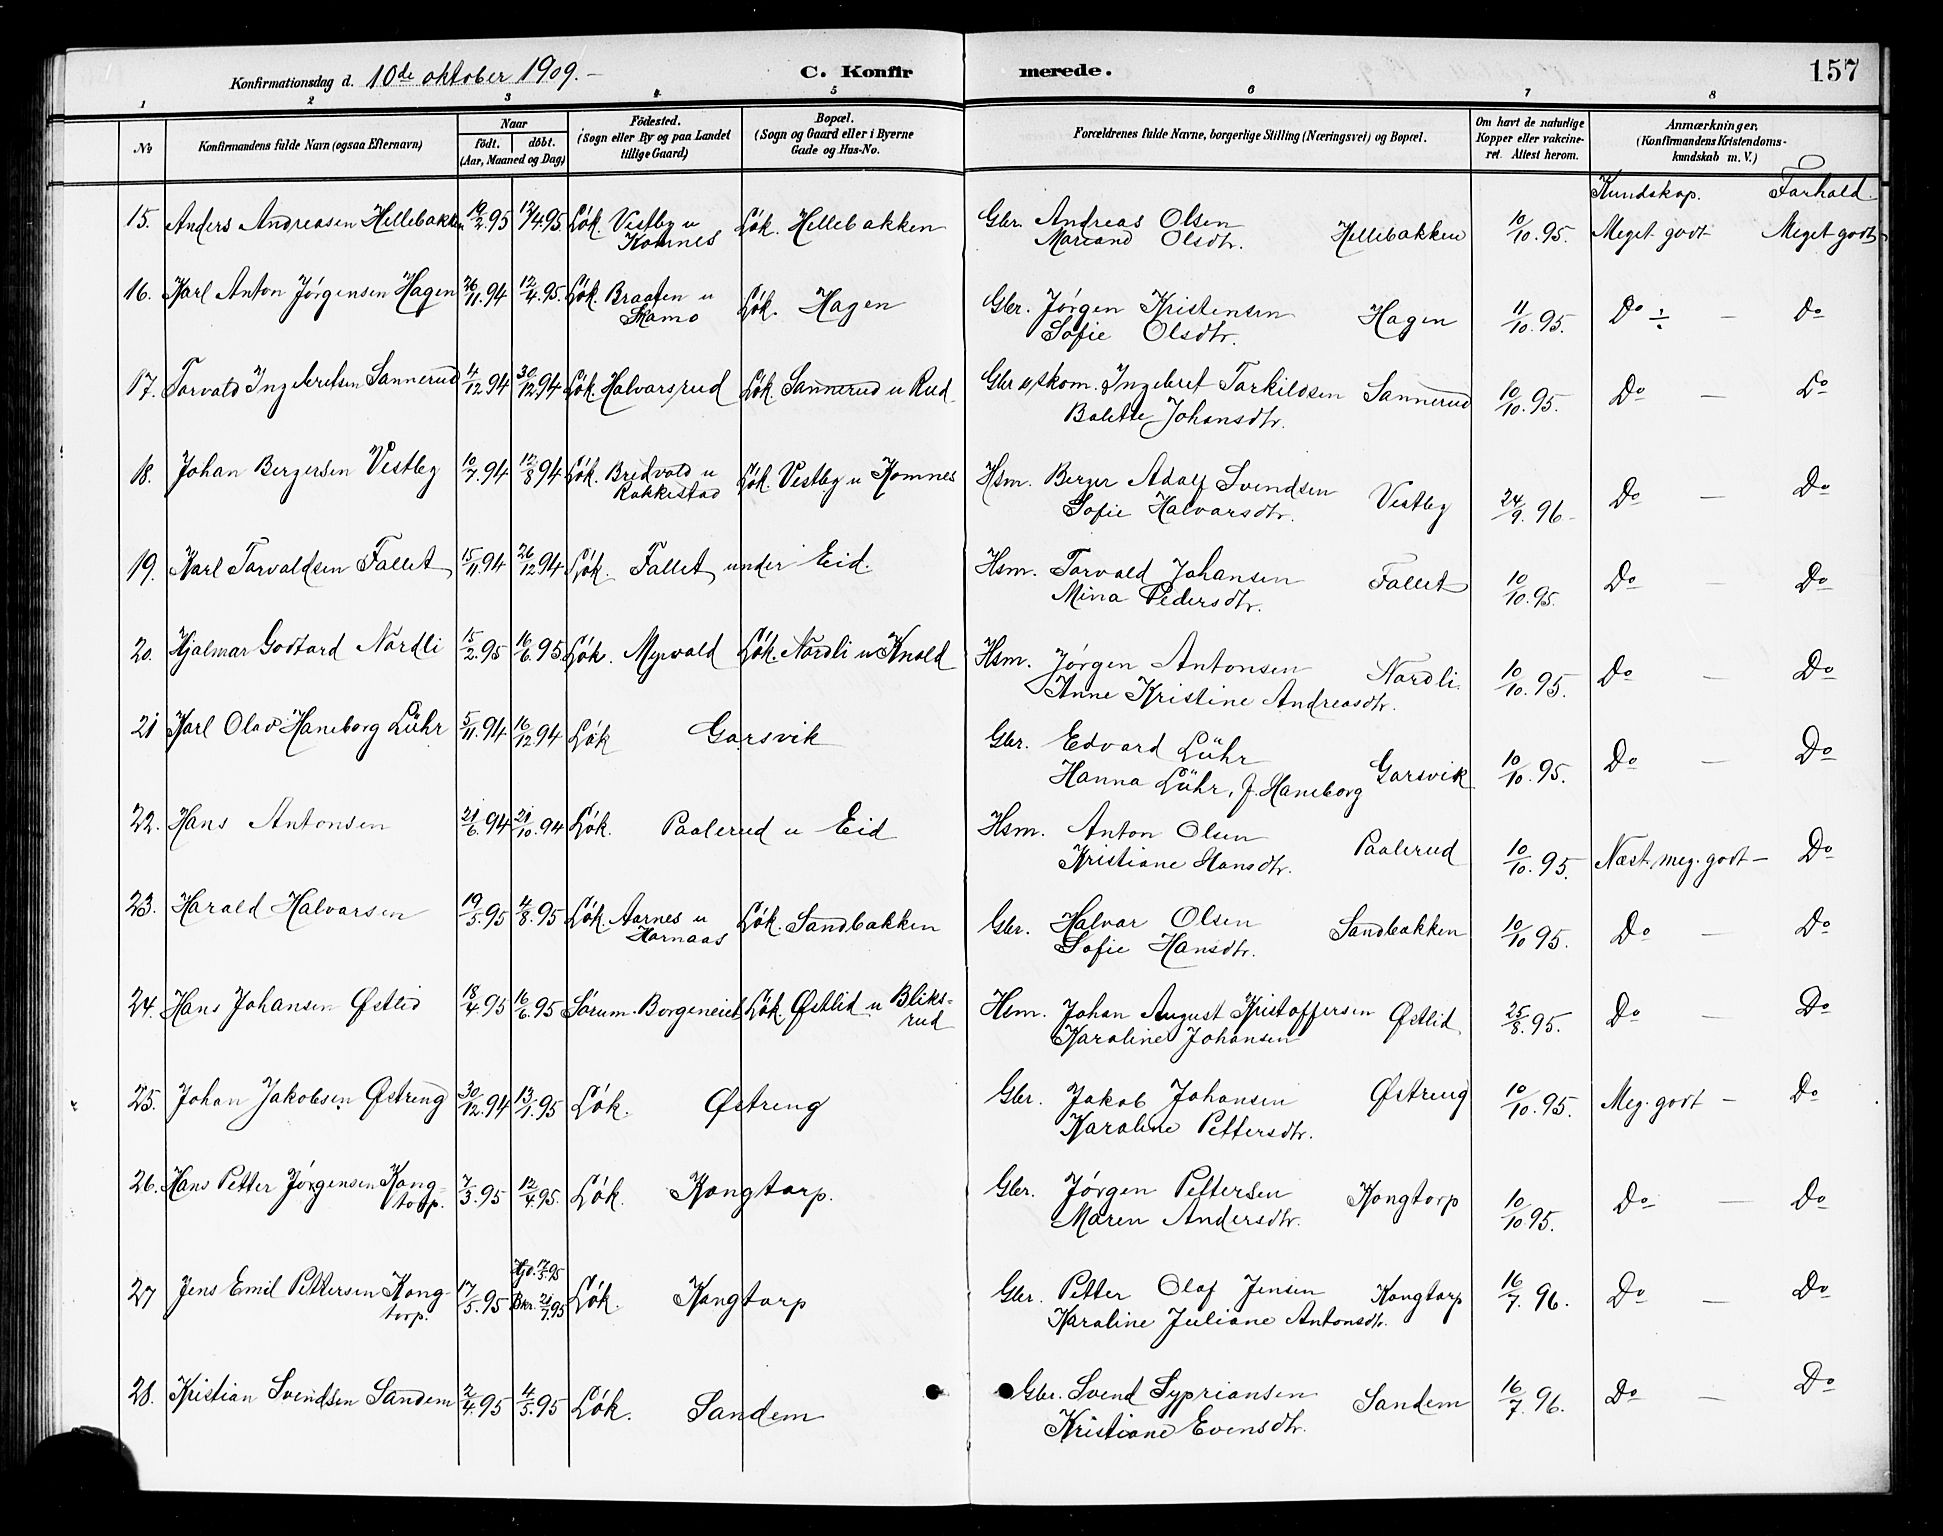 Konfirmationsdag d. 10de oktober 1909.-
C. Konfir merede.
157
1 2 3 4 5 6 7 8
No
Konfirmandens fulde Navn (ogsaa Efternavn)
Naar
født. døbt.
(Aar, Maaned og Dag)
Fødested.
(Sogn eller By og paa Landet
tillige Gaard)
Bopæl.
(Sogn og Gaard eller i Byerne
Gade og Hus-No.
Forældrenes fulde Navne, borgerlige Stilling (Næringsvei) og Bopæl.
Om havt de naturlige
Kopper eller vakcine-
ret. Attest herom.
Anmærkninger.
(Konfirmandens Kristendoms-
kundskab m. V.)
Kundskap. Forhold
15. Anders Andreasen Hellebakken 19/2.95 12/4.95 Løk. Vestby u Løk. Hellebakken Gbr. Andreas Olsen Hellebakken 10/10.95. Meget godt Meget godt
Komnes Olsdtr.
16. Karl Anton Jørgensen Hagen 26/11.94 12/4.95 Løk. Braaten u Løk. Hagen Gbr. Jørgen Kristensen Hagen 11/10.95. Do ÷ — Do
Sofie Olsdtr.
17. Torvald Ingebretsen Sannerud 4/12 94 30/12 94 Løk. Halvarsrud Løk. Sannerud u Rud Gbr Ingebret Torkildsen Sannerud 10/10.95. Do — Do
Bolette Johansdtr.
18. Johan Bergersen Vestby 10/7.94 12/8 94 Løk. Bredvold u Løk. Vestby u Komnes Hsm. Berger Adolf Svendsen Vestby 24/9.96- Do — Do
Rakkestad Sofie Halvarsdtr.
19. Karl Torvaldsen Fallet 15/11.94 26/12 94 Løk. Fallet under Eid. Hsm. Torvald Johansen Fallet 10/10.95. Do — Do
Mina Pedersdtr.
20. Hjalmar Godtard Nordli 15/2.95 16/6.95 Løk. Myrvold Løk. Nordli u Knold Hsm. Jørgen Antonsen Nordli. 10/10.95. Do — Do
Anne Kristine Andreasdtr.
21 Karl Olav Haneborg Lühr 5/11.94 16/12 94 Løk Garsvik Gbr. Edvard Lühr Garsvik 10/10.95. Do — Do
Hanna Lühr, f. Haneborg
22. Hans Antonsen 21/6.94 21/10.94 Løk. Paalerud u Eid Hsm. Anton Olsen Paalerud 10/10.95. Næst. meg. godt — Do
Kristiane Hansdtr.
23. Harald Halvarsen 19/5.95 4/8.95 Løk. Aarnes u Løk. Sandbakken Gbr. Halvar Olsen Sandbakken 10/10 95. Do — Do
Hornaas Sofie Hansdtr.
24. Hans Johansen Østlid 18/4.95 16/6.95 Sørum. Borgeneiet Løk Østlid u Bliks- Hsm. Johan August Kristoffersen Østlid 25/8.95. Do — Do
rud Karoline Johansen
25. Johan Jakobsen Østreng 30/12.94 13/1.95 Løk. Østreng Gbr. Jakob Johansen Østreng 10/10.95. Meg. godt — Do
Karoline Pettersdtr.
26. Hans Petter Jørgensen Kong- 7/3.95 12/4.95. Løk. Kongtorp. Gbr. Jørgen Pettersen Kongtorp 10/10 95. Do — Do
torp. Maren Andersdtr.
27 Jens Emil Pettersen Kong- 17/5.95 Hjd. 17/5.95 Løk. Kongtorp Gbr. Petter Olaf Jensen Kongtorp 16/7.96. Do — Do
torp. Bkr. 21/7.95 Karoline Juliane Antonsdtr.
28. Kristian Svendsen Sandem 2/4.95 4/5.95 Løk. Sandem Gbr. Svend Sypriansen Sandem 16/7.96. Do — Do
Kristiane Evensdtr.